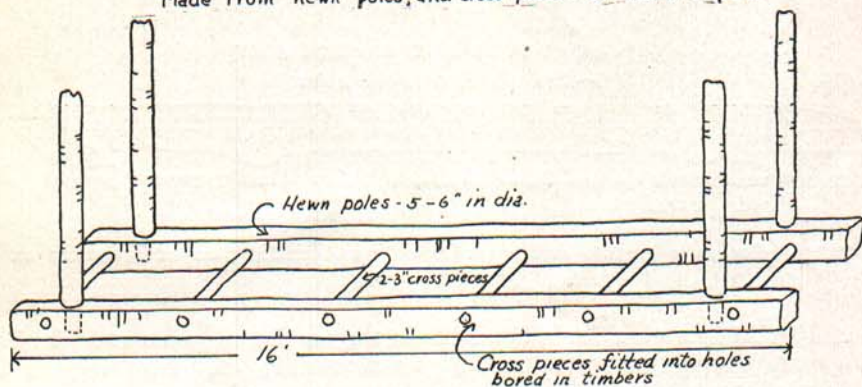 Made from hewn poles, and
Hewn poles - 5 - 6" in dia.
2-3" cross pieces
16'
Cross pieces fitted into holes
bored in timbers